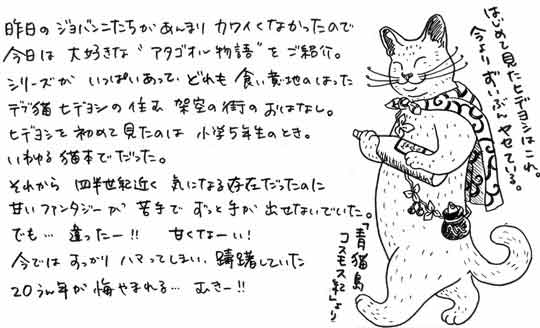 昨日の ジョバンニたちが あんまり カワイくなかったので
今日は 大好きな “アタゴオル物語” を ご紹介。
シリーズが いっぱいあって、どれも 食い意地のはった
デブ猫 ヒデヨシの 住む 架空の街の おはなし。
ヒデヨシを 初めて 見たのは 小学5年生のとき。
いわゆる 猫本でだった。
それから 四半世紀近く 気になる存在だったのに
甘いファンタジーが 苦手で ずっと手が 出せないでいた。
でも… 違ったー!! 甘くなーい!
今では すっかり ハマってしまい、躊躇していた
20うん年が 悔やまれる… むきー!!
はじめて見たヒデヨシはこれ。
今よりずいぶんやせている。
「青猫島
コスモス紀」より